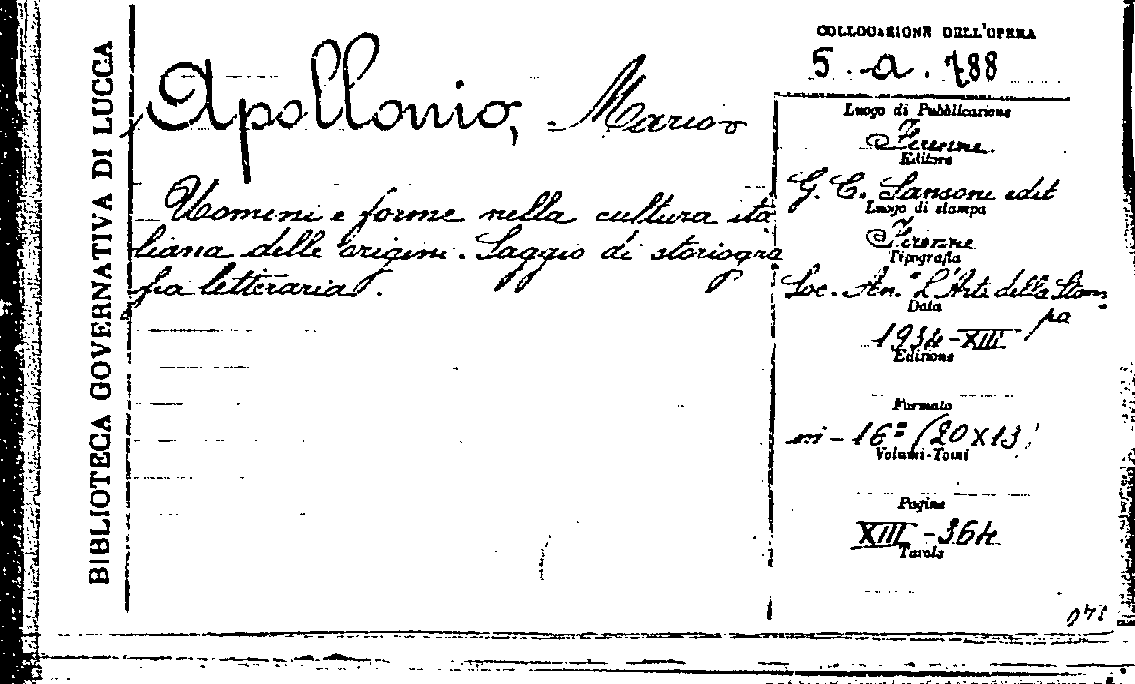 BIBLIOTECA GOVERNATIVA DI LUCCA
Apollonio, Mario
Uomini e forme nella cultura ita
liana delle origini. Saggio di storiogra
fia letteraria.
COLLOCAZIONE DELL'OPERA
5. a. 788
Luogo di Pubblicazione
Firenze
Editore
G. C. Sansoni edit
Luogo di stampa
Firenze
Tipografia
Soc. An. "L'Arte della Stam-
pa
Data
1934-XIII
Edizione
Formato
in-16° (20x13)
Volumi-Tomi
Pagine
XIII-364
Tavole